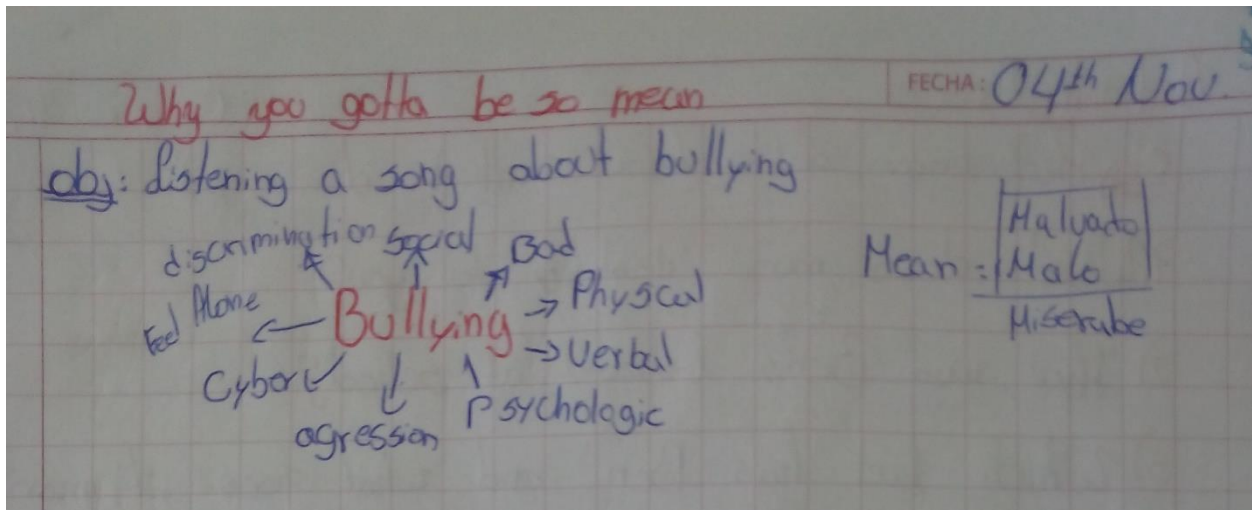 Why you gotta be so mean
FECHA: 04th Nov.
obj: Listening a song about bullying
discrimination
social
Bad
Physcal
Verbal
Psychologic
agression
Cyber
Feel Alone
Bullying
Mean = Malvado
Malo
Miserabe